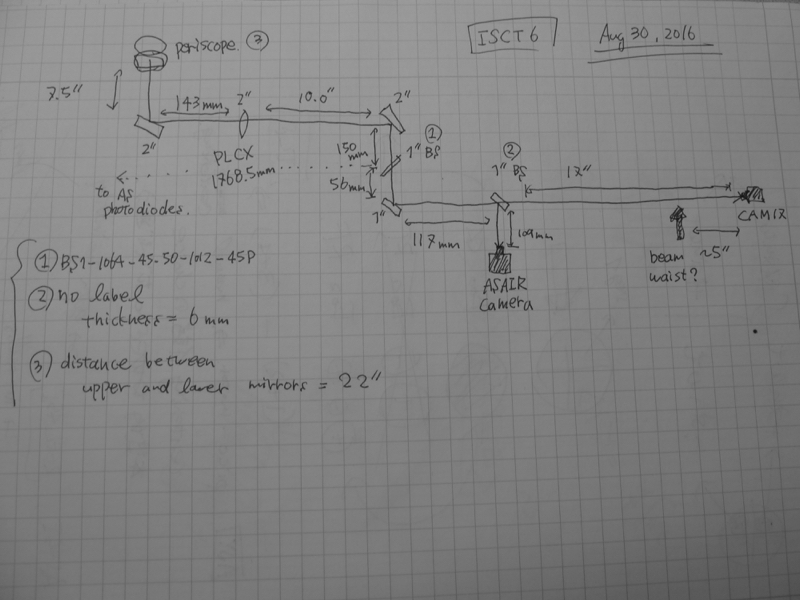 ISCT6
Aug 30, 2016
periscope. ③
7.5"
143mm
2"
10.0"
2"
2"
PLCX
1768.5mm
150
mm
①
1" BS
56mm
to AS
photodiodes.
1"
117mm
②
1" BS
17"
109mm
ASAIR
Camera
CAM17
beam
waist?
~5"
① BS1-1064-45-50-1012-45P
② no label
thickness = 6 mm
③ distance between
upper and lower mirrors = 22"